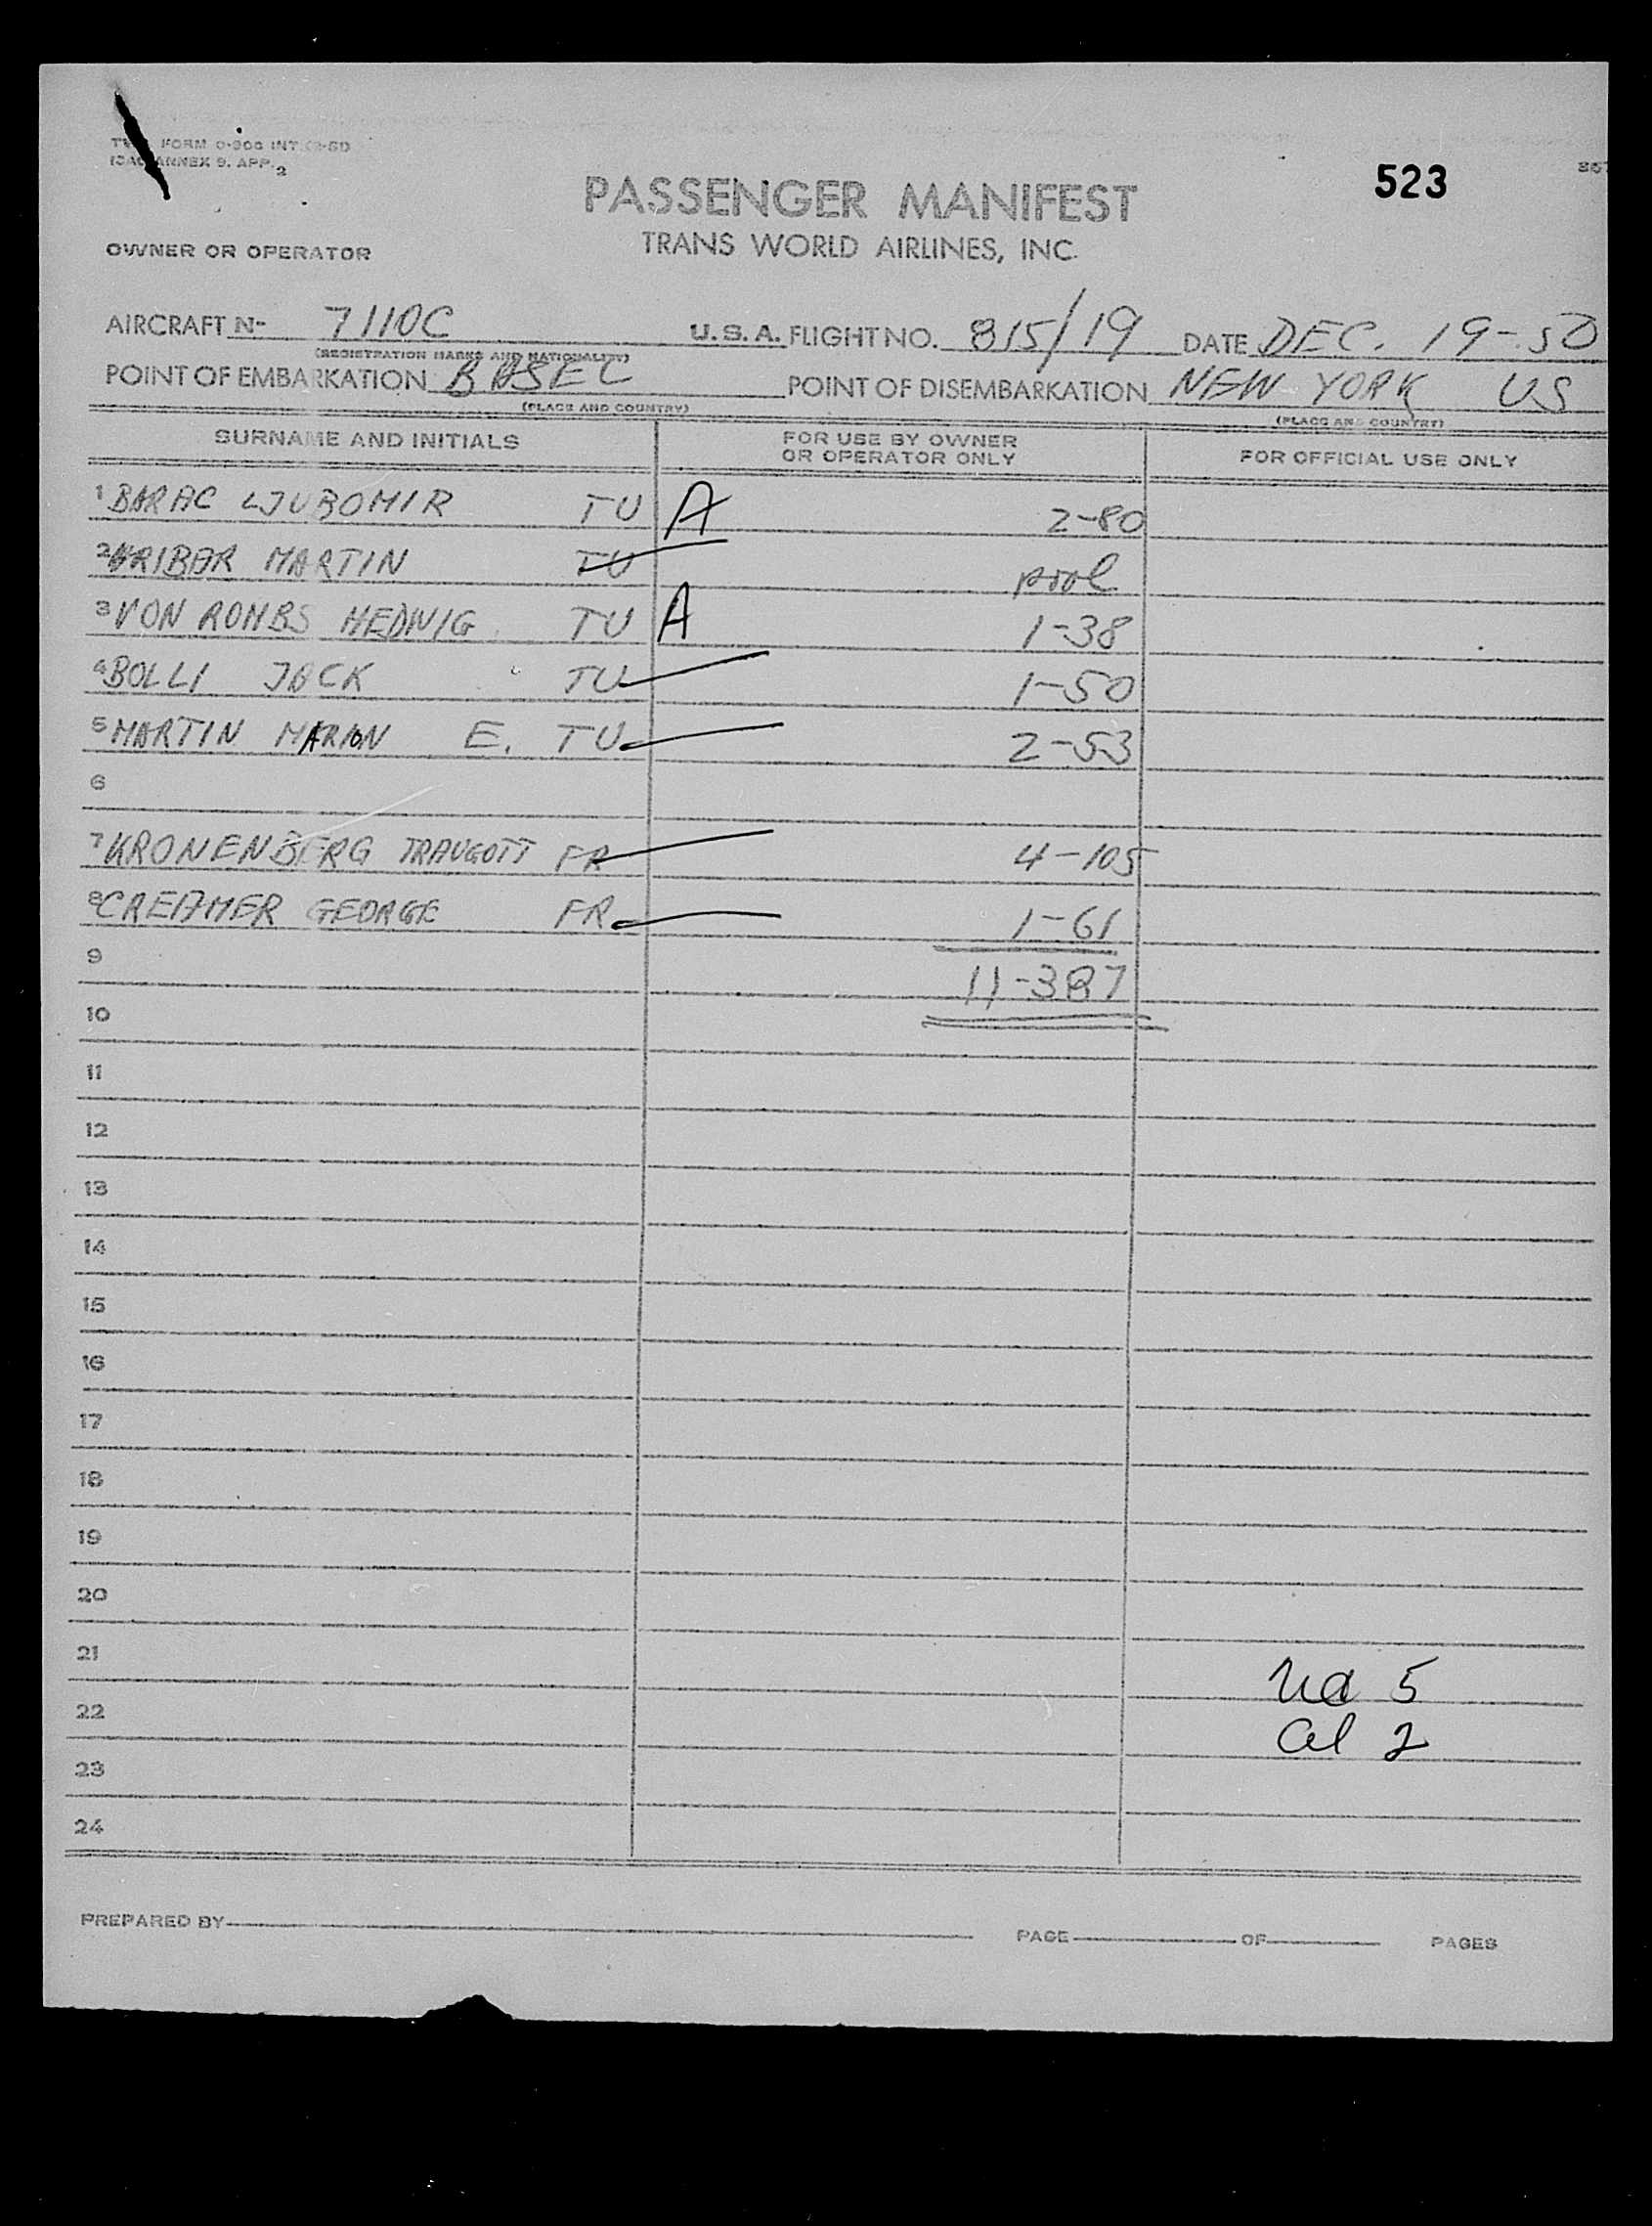 FORM 0-906 INT
ICAO ANNEX 9. APP. 2
523
PASSENGER MANIFEST
OWNER OR OPERATOR
TRANS WORLD AIRLINES, INC.
AIRCRAFT N- 7110C U.S.A. FLIGHT NO. 815/19 DATE DEC. 19-50
(REGISTRATION MARKS AND NATIONALITY)
POINT OF EMBARKATION POINT OF DISEMBARKATION NEW YORK US
(PLACE AND COUNTRY) (PLACE AND COUNTRY)
SURNAME AND INITIALS FOR USE BY OWNER OR OPERATOR ONLY FOR OFFICIAL USE ONLY
1 BARAC LJUBOMIR TU A 2-80
2 MARTIN TU pool
3 VON ROMBS HEDWIG TU A 1-38
4 BOLLI JACK TU 1-50
5 MARTIN MARION E. TU 2-53
6
7 KRONENBERG TRAUGOTT FR 4-105
8 CREAMER GEORGE FR 1-61
9 11-387
10
11
12
13
14
15
16
17
18
19
20
21 5
22 2
23
24
PREPARED BY PAGE OF PAGES